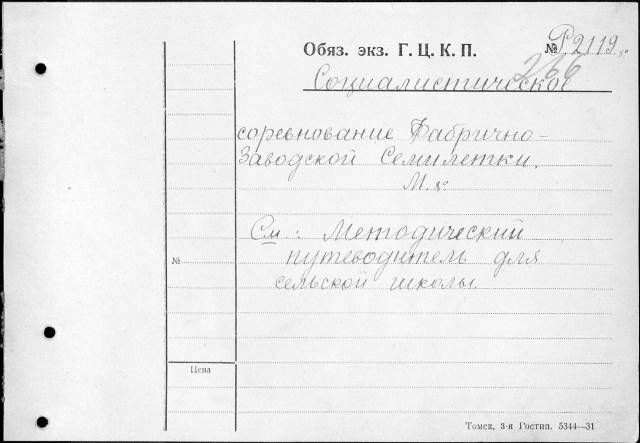 Обяз. экз. Г. Ц. К. П. № Р2119
266
Социалистическое
соревнование Фабрично-
Заводской Семилетки.
М.
См.: Методический
путеводитель для
сельской школы.
№
Цена
Томск, 3-я Гостип. 5344—31